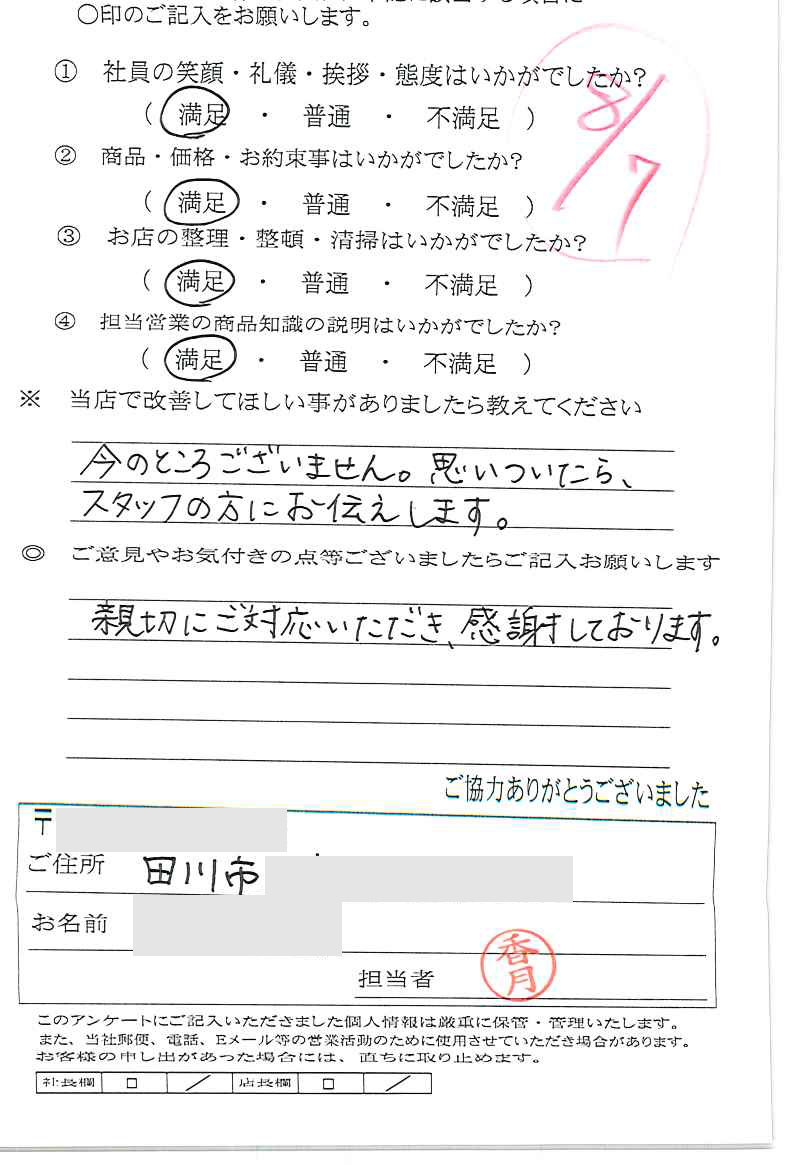 〇印のご記入をお願いします。
① 社員の笑顔・礼儀・挨拶・態度はいかがでしたか？
（ 満足 ・ 普通 ・ 不満足 ）
8/7
② 商品・価格・お約束事はいかがでしたか？
（ 満足 ・ 普通 ・ 不満足 ）
③ お店の整理・整頓・清掃はいかがでしたか？
（ 満足 ・ 普通 ・ 不満足 ）
④ 担当営業の商品知識の説明はいかがでしたか？
（ 満足 ・ 普通 ・ 不満足 ）
※ 当店で改善してほしい事がありましたら教えてください
今のところございません。思いついたら、
スタッフの方にお伝えします。
◎ ご意見やお気付きの点等ございましたらご記入お願いします
親切にご対応いただき、感謝しております。
ご協力ありがとうございました
〒
ご住所 田川市
お名前
担当者 香月
このアンケートにご記入いただきました個人情報は厳重に保管・管理いたします。
また、当社郵便、電話、Eメール等の営業活動のために使用させていただき場合があります。
お客様の申し出があった場合には、直ちに取り止めます。
社長欄 □ ／ 店長欄 □ ／